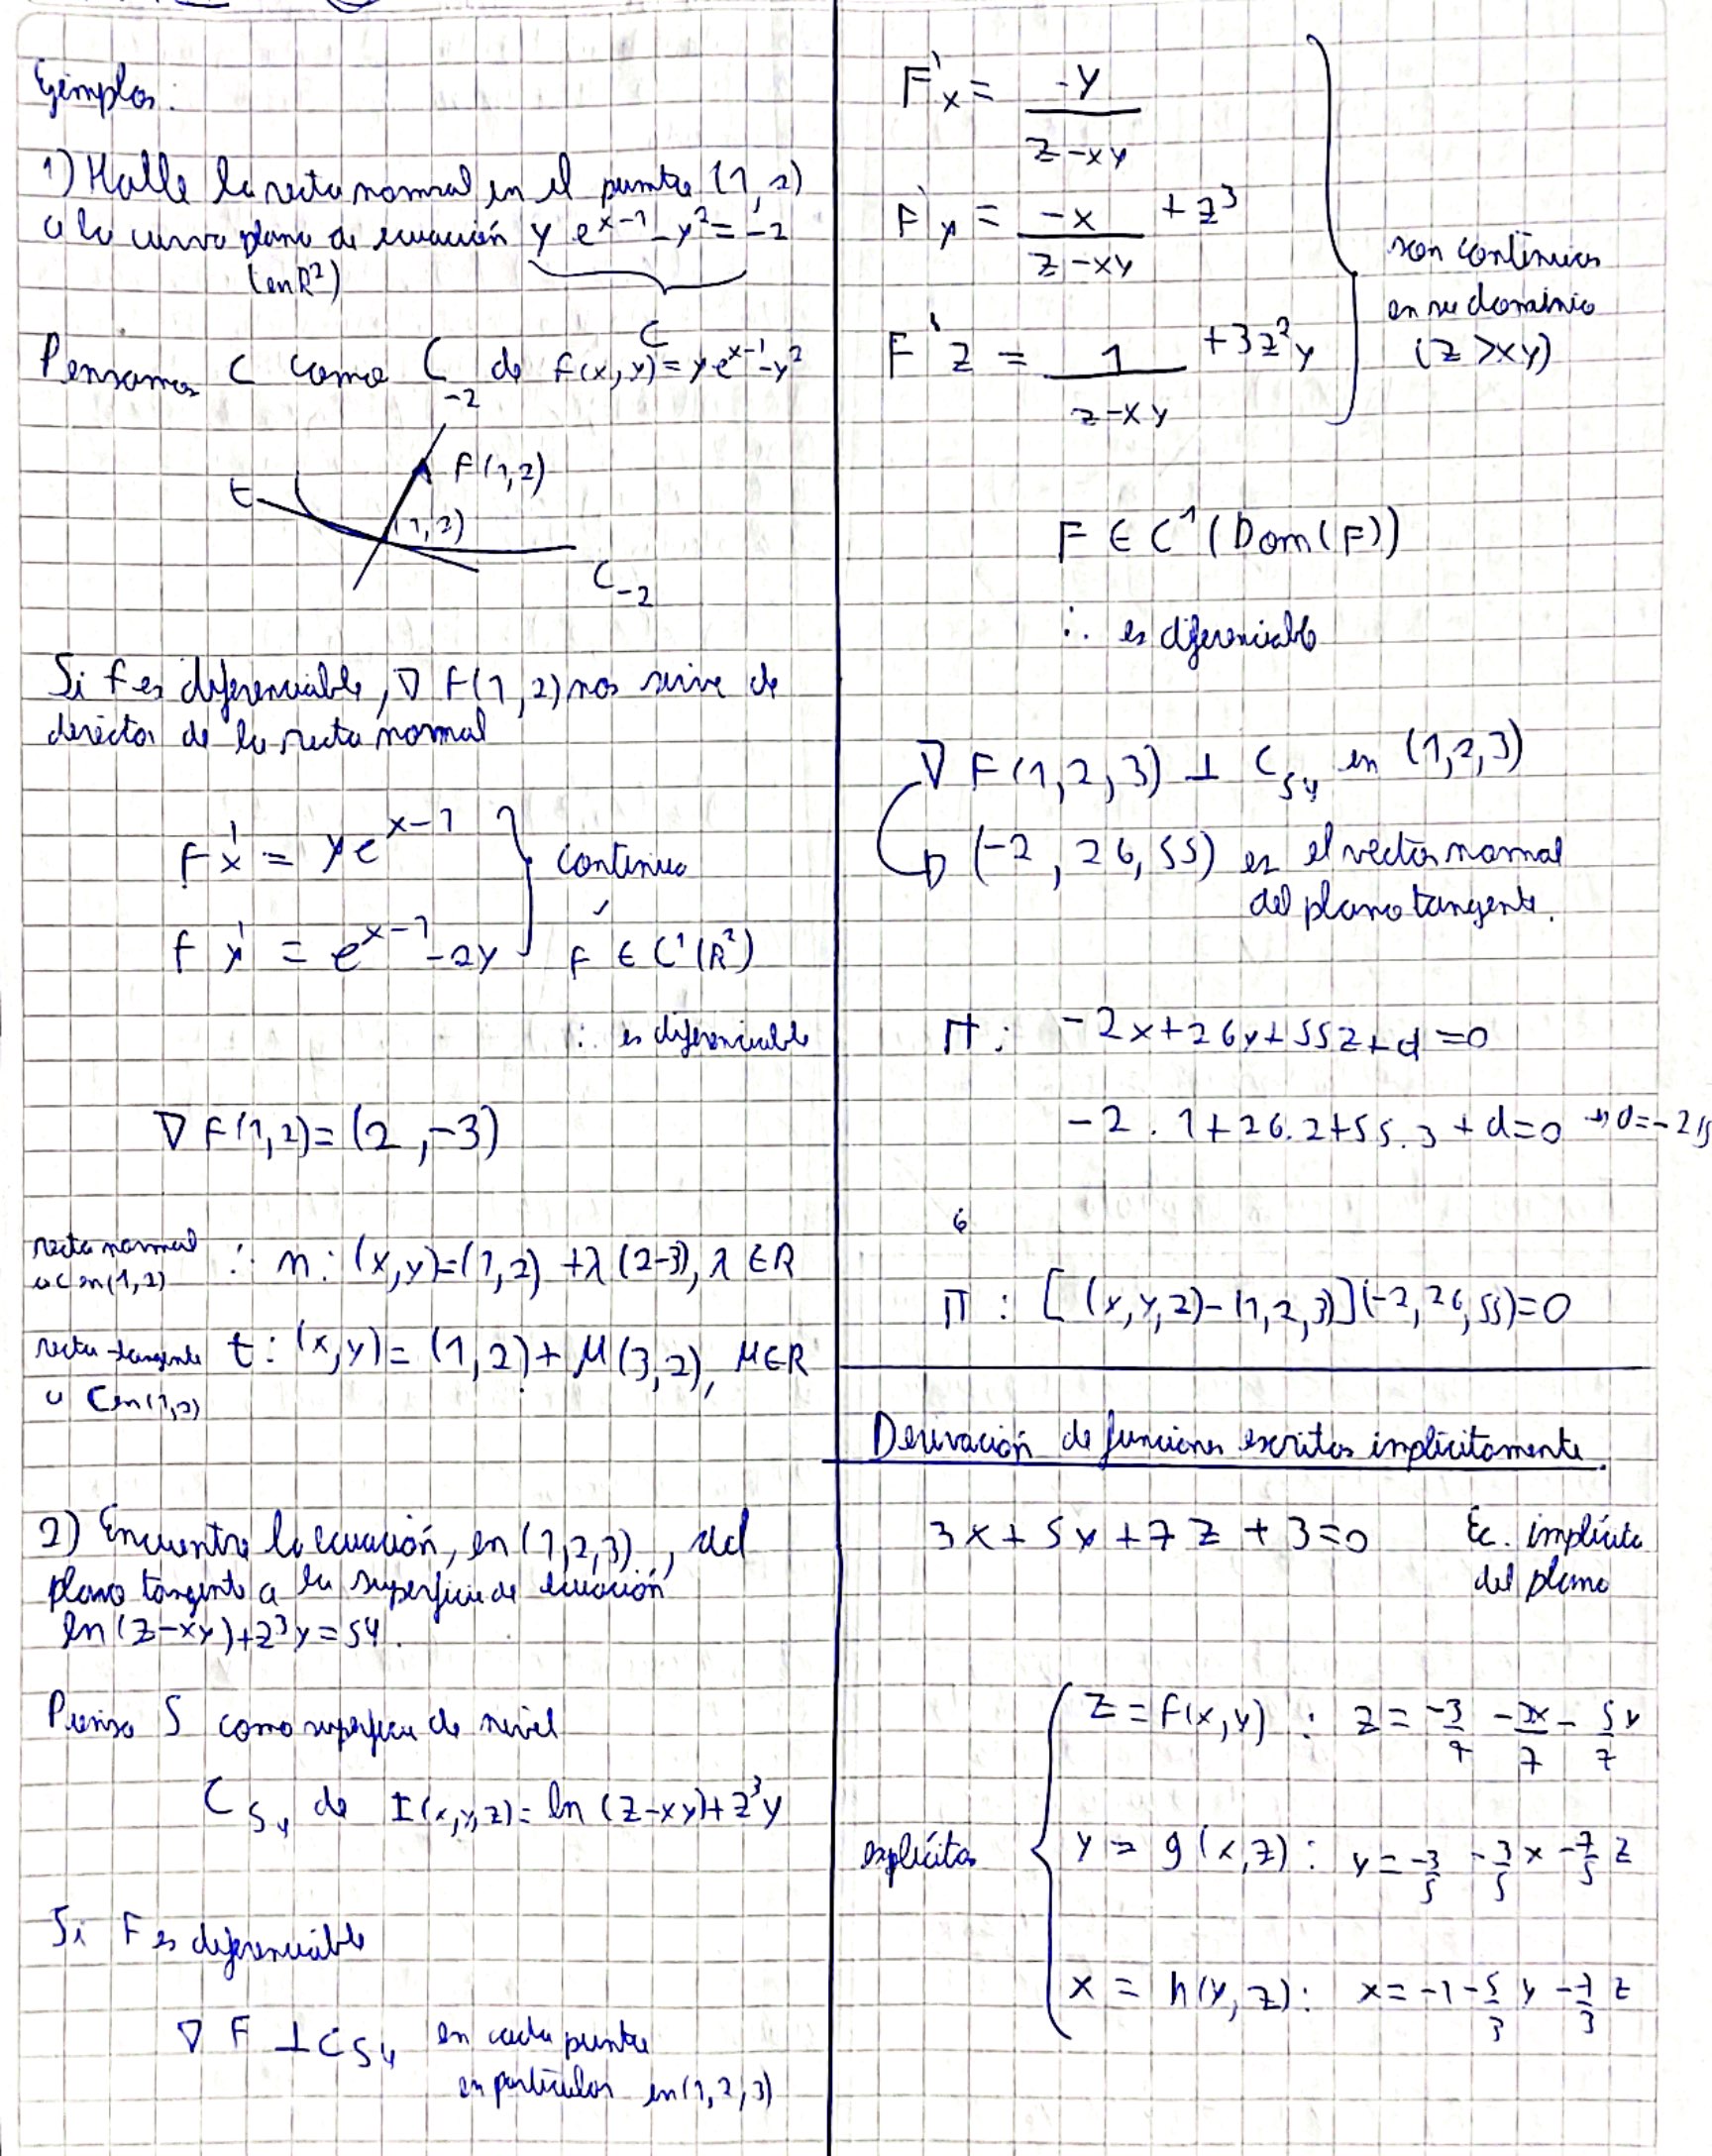 Ejemplos:
1) Halle la recta normal en el punto (1,2)
a la curva plana de ecuación y e^{x-1} - y² = -2
(en R²)
C
Pensamos C como C_{-2} de f(x,y) = y e^{x-1} - y²
F(1,2)
t
(1,2)
C_{-2}
Si f es diferenciable, ∇ F(1,2) nos sirve de
director de la recta normal
F'x = y e^{x-1}
continua
F'y = e^{x-1} - 2y
F ∈ C¹(R²)
∴ es diferenciable
∇ F(1,2) = (2,-3)
recta normal
a C en (1,2)
∴ n: (x,y)=(1,2) + λ (2-3), λ ∈ R
recta tangente
a C en (1,2)
t: (x,y) = (1,2) + μ (3,2), μ ∈ R
2) Encuentre la ecuación, en (1,2,3), del
plano tangente a la superficie de ecuación
ln(z-xy)+z³y = 54.
Pienso S como superficie de nivel
C_{54} de F(x,y,z) = ln (z-xy) + z³y
Si F es diferenciable
∇ F ⊥ C_{54} en cada punto
en particular en (1,2,3)
F'x = -y / (z-xy)
F'y = -x / (z-xy) + z³
F'z = 1 / (z-xy) + 3z²y
son continuas
en su dominio
(z > xy)
F ∈ C¹ (Dom(F))
∴ es diferenciable
∇ F(1,2,3) ⊥ C_{54} en (1,2,3)
(-2, 26, 55) es el vector normal
del plano tangente.
π: -2x+26y+55z+d=0
-2.1+26.2+55.3+d=0 → d=-215
ó
π: [(x,y,z)-(1,2,3)](-2,26,55)=0
Derivación de funciones escritas implícitamente.
3x+5y+7z+3=0 Ec. implícita
del plano
explícitas
z = f(x,y): z = -3/7 - 3x/7 - 5y/7
y = g(x,z): y = -3/5 - 3/5 x - 7/5 z
x = h(y,z): x = -1 - 5/3 y - 7/3 z